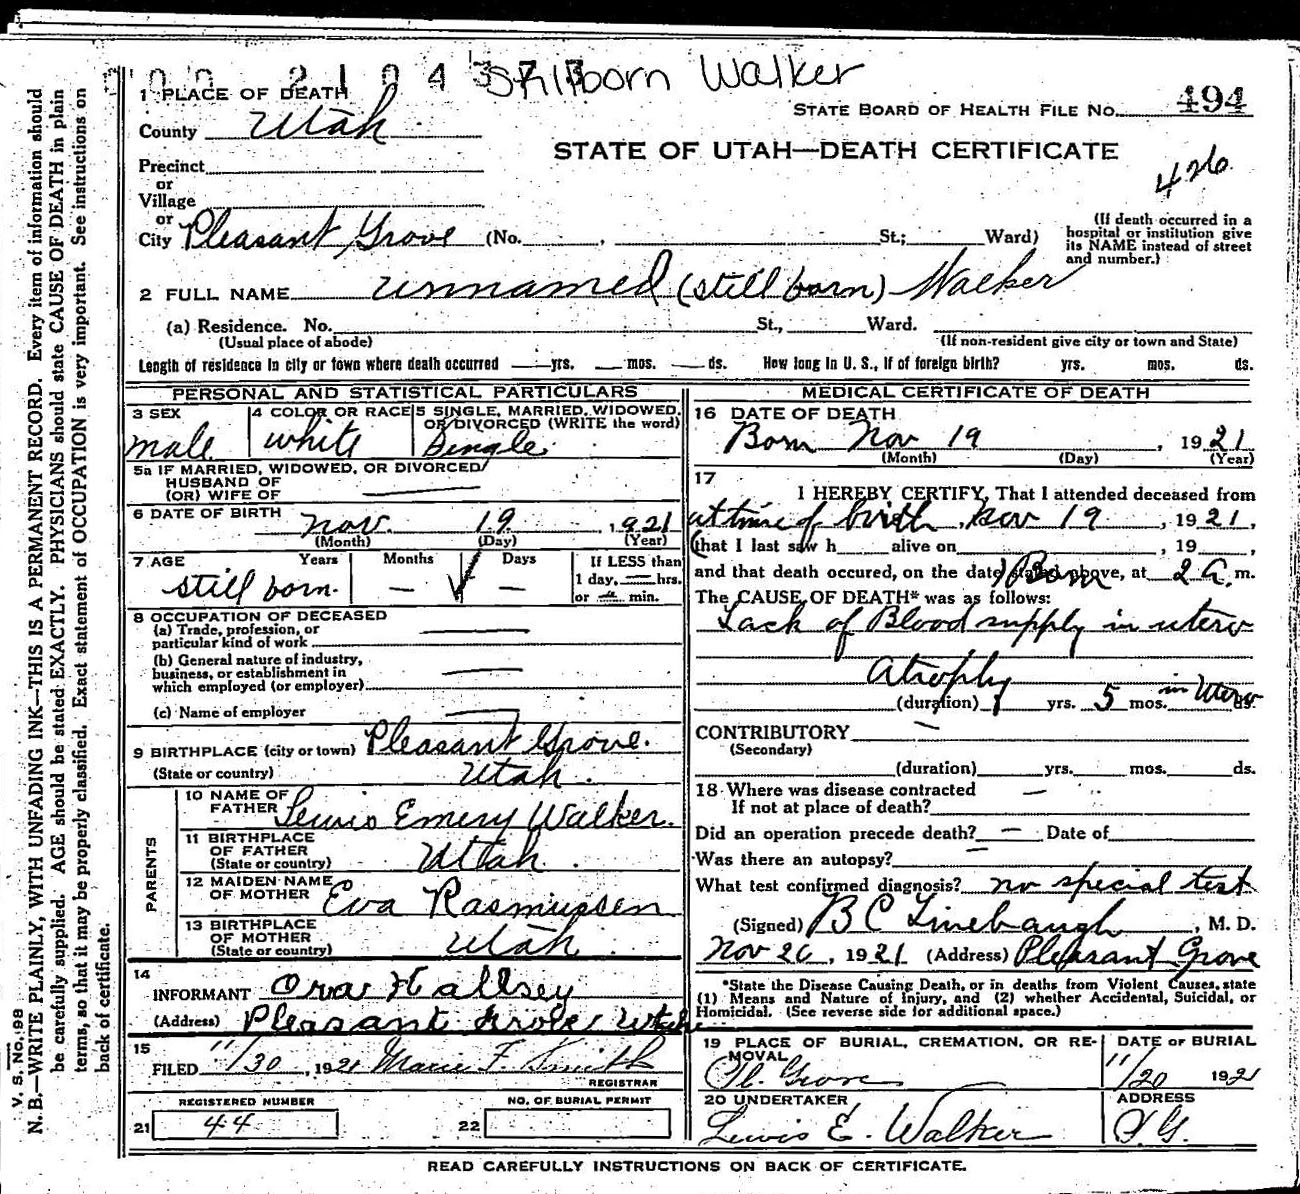 Stillborn Walker
1 PLACE OF DEATH
STATE BOARD OF HEALTH FILE No. 494
County Utah
STATE OF UTAH—DEATH CERTIFICATE
426
Precinct
or
Village
or
City Pleasant Grove (No. , St.; Ward)
(If death occurred in a
hospital or institution give
its NAME instead of street
and number.)
2 FULL NAME unnamed (still born) Walker
(a) Residence. No. St., Ward.
(Usual place of abode) (If non-resident give city or town and State)
Length of residence in city or town where death occurred yrs. mos. ds. How long in U. S., if of foreign birth? yrs. mos. ds.
PERSONAL AND STATISTICAL PARTICULARS
3 SEX
male
4 COLOR OR RACE
white
5 SINGLE, MARRIED, WIDOWED,
OR DIVORCED (WRITE the word)
Single
5a IF MARRIED, WIDOWED, OR DIVORCED
HUSBAND OF
(OR) WIFE OF
6 DATE OF BIRTH Nov. 19, 1921
(Month) (Day) (Year)
7 AGE Years Months Days
still born. — —
If LESS than
1 day, — hrs.
or — min.
8 OCCUPATION OF DECEASED
(a) Trade, profession, or
particular kind of work
(b) General nature of industry,
business, or establishment in
which employed (or employer)
(c) Name of employer
9 BIRTHPLACE (city or town) Pleasant Grove.
(State or country) Utah.
PARENTS
10 NAME OF
FATHER Lewis Emery Walker.
11 BIRTHPLACE
OF FATHER
(State or country) Utah.
12 MAIDEN NAME
OF MOTHER Eva Rasmussen
13 BIRTHPLACE
OF MOTHER
(State or country) Utah.
14
INFORMANT Ora Hallsey
(Address) Pleasant Grove Utah
15
FILED 11/30, 1921 Marie F. Smith
REGISTRAR
REGISTERED NUMBER NO. OF BURIAL PERMIT
21 44 22
MEDICAL CERTIFICATE OF DEATH
16 DATE OF DEATH
Born Nov 19, 1921
(Month) (Day) (Year)
17
I HEREBY CERTIFY, That I attended deceased from
at time of birth, Nov 19, 1921,
(that I last saw h alive on , 19 ,
and that death occured, on the date) stated above, at 2 A. m.
Born
The CAUSE OF DEATH* was as follows:
Lack of Blood supply in utero
Atrophy
(duration) yrs. 5 mos. in Utero ds.
CONTRIBUTORY —
(Secondary)
(duration) yrs. mos. ds.
18 Where was disease contracted —
If not at place of death?
Did an operation precede death? — Date of
Was there an autopsy? —
What test confirmed diagnosis? no special test
(Signed) B C Linebaugh, M. D.
Nov 26, 1921 (Address) Pleasant Grove
*State the Disease Causing Death, or in deaths from Violent Causes, state
(1) Means and Nature of Injury, and (2) whether Accidental, Suicidal, or
Homicidal. (See reverse side for additional space.)
19 PLACE OF BURIAL, CREMATION, OR RE-
MOVAL
Pl. Grove
DATE OF BURIAL
11/20 1921
20 UNDERTAKER
Lewis E. Walker
ADDRESS
P. G.
READ CAREFULLY INSTRUCTIONS ON BACK OF CERTIFICATE.
V. S. NO. 98
N. B.—WRITE PLAINLY, WITH UNFADING INK—THIS IS A PERMANENT RECORD. Every item of information should
be carefully supplied. AGE should be stated EXACTLY. PHYSICIANS should state CAUSE OF DEATH in plain
terms, so that it may be properly classified. Exact statement of OCCUPATION is very important. See instructions on
back of certificate.